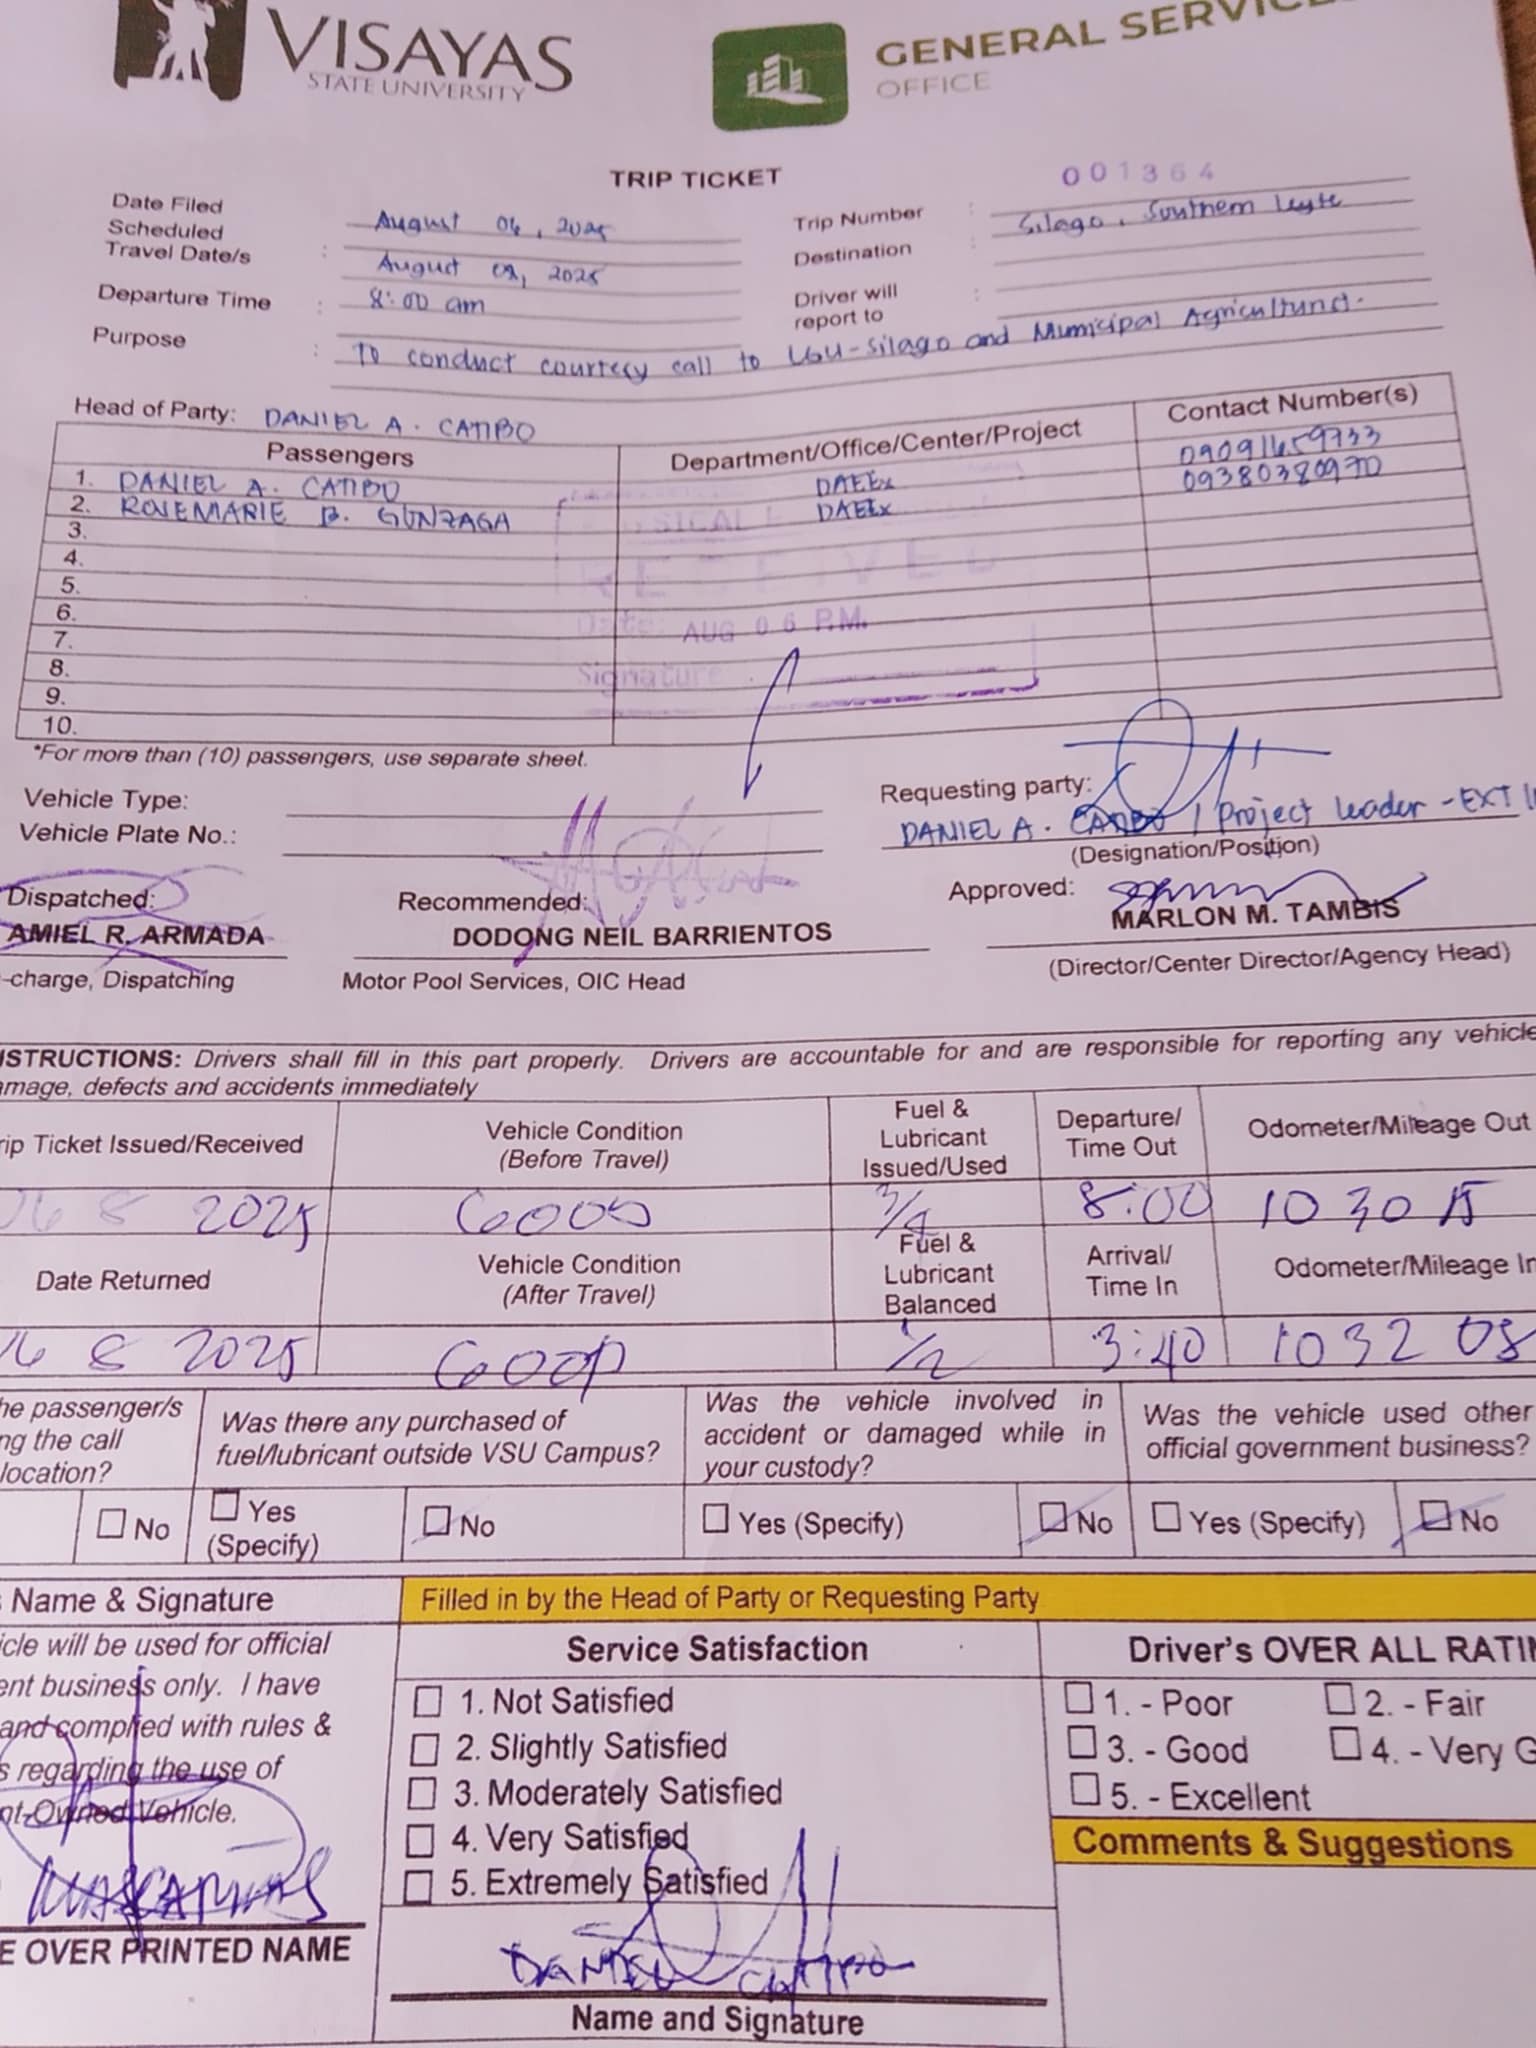 VISAYAS
STATE UNIVERSITY
GENERAL SERVIC
OFFICE
TRIP TICKET
001364
Date Filed
August 06, 2025
Trip Number :
Silago, Southern Leyte
Scheduled
Travel Date/s :
August 08, 2025
Destination :
Departure Time :
8:00 am
Driver will
report to :
Purpose :
To conduct courtesy call to LGU-Silago and Municipal Agriculturist.
Head of Party: DANIEL A. CATIBO
Passengers Department/Office/Center/Project Contact Number(s)
1. DANIEL A. CATIBO DAEEx 09091659733
2. ROSEMARIE B. GUNZAGA DAEEx 09380380970
3.
4.
5.
6.
7.
8.
9.
10.
RECEIVED
Date: AUG 06 P.M.
Signature
*For more than (10) passengers, use separate sheet.
Vehicle Type:
Vehicle Plate No.:
Requesting party:
DANIEL A. CATIBO / Project Leader - EXT
(Designation/Position)
Dispatched:
AMIEL R. ARMADA
-charge, Dispatching
Recommended:
DODONG NEIL BARRIENTOS
Motor Pool Services, OIC Head
Approved:
MARLON M. TAMBIS
(Director/Center Director/Agency Head)
NSTRUCTIONS: Drivers shall fill in this part properly. Drivers are accountable for and are responsible for reporting any vehicle
amage, defects and accidents immediately
rip Ticket Issued/Received
Vehicle Condition
(Before Travel)
Fuel &
Lubricant
Issued/Used
Departure/
Time Out
Odometer/Mileage Out
8 2025 GOOD 3/4 8:00 103015
Date Returned
Vehicle Condition
(After Travel)
Fuel &
Lubricant
Balanced
Arrival/
Time In
Odometer/Mileage In
8 2025 GOOD 1/2 3:40 103208
he passenger/s
ng the call
location?
Was there any purchased of
fuel/lubricant outside VSU Campus?
Was the vehicle involved in
accident or damaged while in
your custody?
Was the vehicle used other
official government business?
No
Yes
(Specify)
No
Yes (Specify)
No
Yes (Specify)
No
Name & Signature
Filled in by the Head of Party or Requesting Party
icle will be used for official
ent business only. I have
and complied with rules &
s regarding the use of
nt-Owned Vehicle.
E OVER PRINTED NAME
Service Satisfaction
1. Not Satisfied
2. Slightly Satisfied
3. Moderately Satisfied
4. Very Satisfied
5. Extremely Satisfied
DANIEL CATIBO
Name and Signature
Driver's OVER ALL RATIN
1. - Poor
2. - Fair
3. - Good
4. - Very G
5. - Excellent
Comments & Suggestions